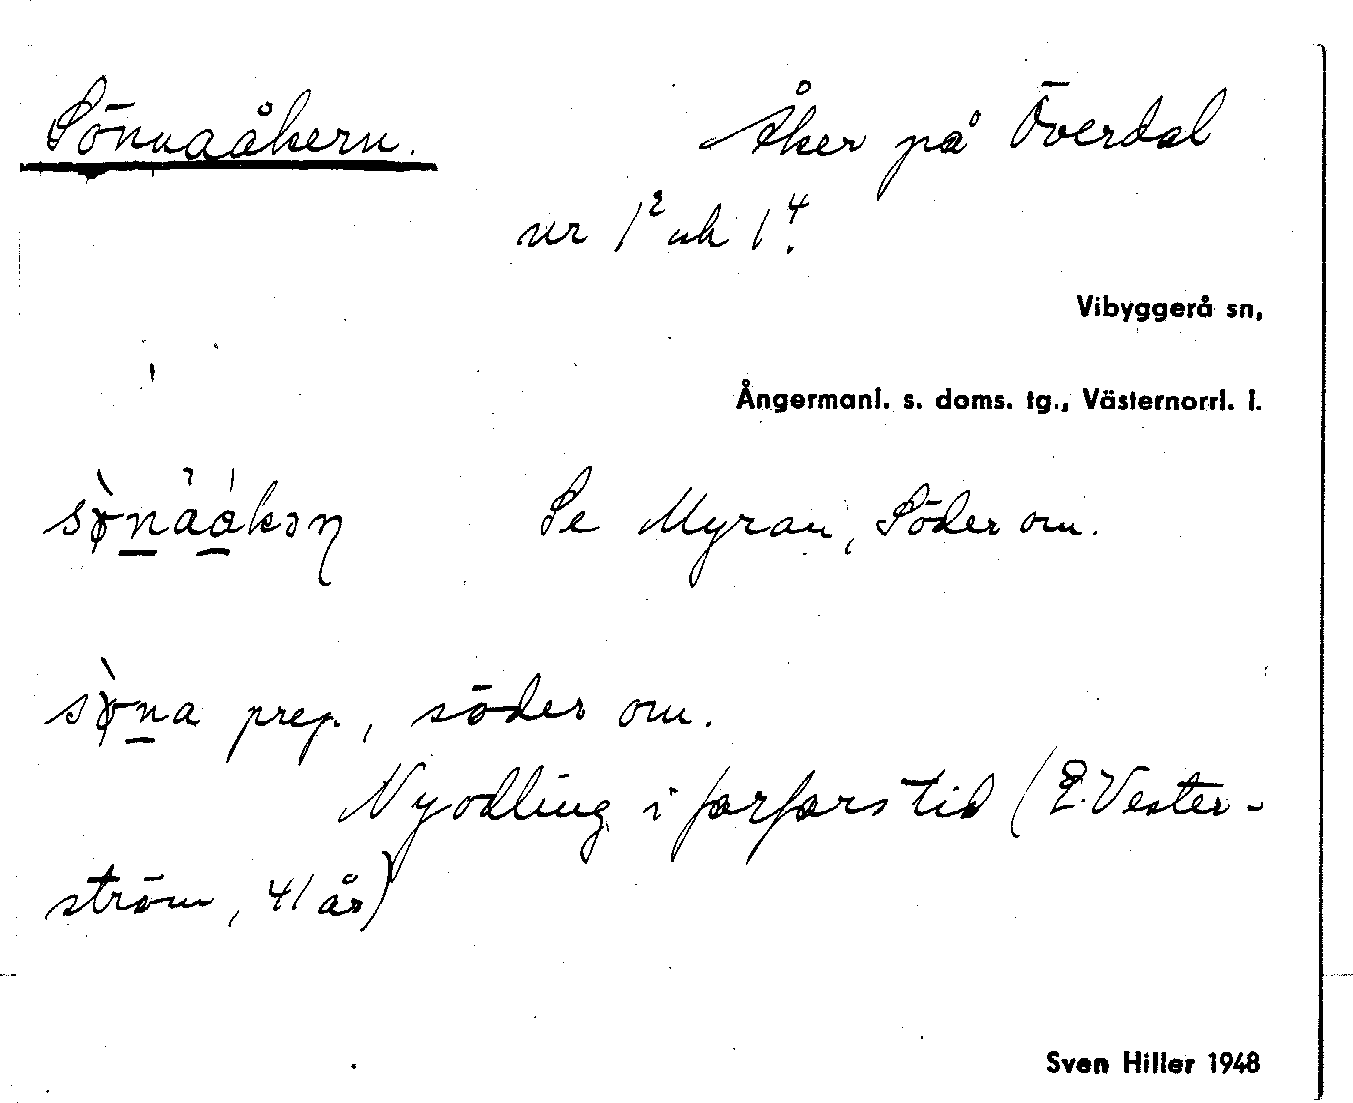 Sönnaåkern. Åker på Överdal
nr 1² och 1⁴.
Vibyggerå sn,
Ångermanl. s. doms. tg., Västernorrl. l.
Se Myran, Söder om.
prep., söder om.
Nyodling i farfars tid (E. Vester-
ström, 41 år)
Sven Hiller 1948